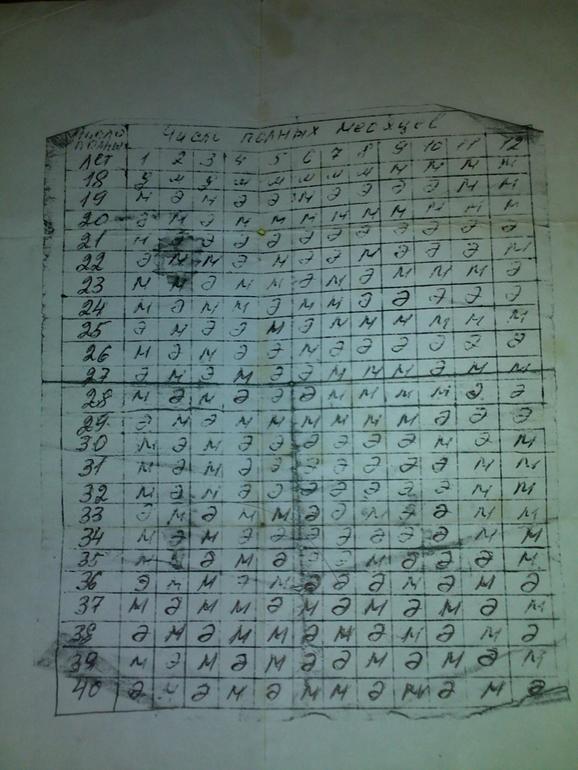 Число полных месяцев
число
полных
лет 1 2 3 4 5 6 7 8 9 10 11 12
18 э м э м м м м м м м м м
19 м э м э э м э э э э м м
20 э м э м м м м м м м м м
21 м э э э э э э э э э э
22 э м м э м э э м э э э м
23 м м э м м э м э м м м э
24 м э м м э м м э э э э э
25 э м э э м э м м м м м м
26 м э м э э м э э э э э э
27 э м э м э э м м м э м м
28 м э м э э э м м м м э э
29 э м э м м м м м м э э э
30 м э м э э э э э э м э м
31 м э м э э э э э э э м м
32 м э м э э э э э э э м м
33 э м э м м э э м э э м м
34 м э м э э э э э э э м м
35 м э м э э э м э э э м
36 э м м э м э э э м э м э
37 м э м м э м э м э м э м
38 э м э м м э м э м э м э
39 м э м э м э э м э м э м
40 э м э м э м м э м э м э